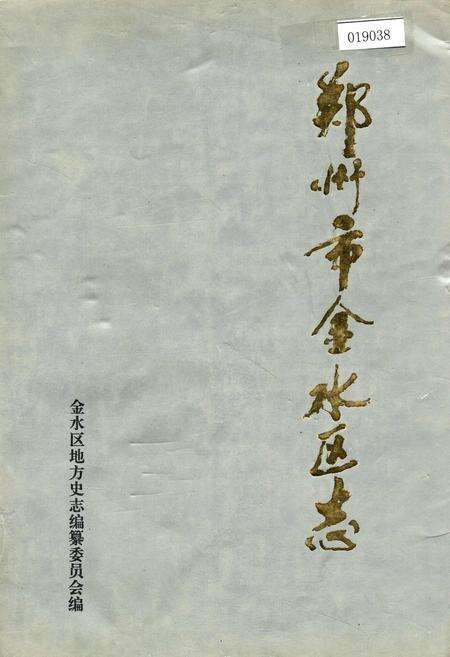 019038
郑州市金水区志
金水区地方史志编纂委员会编